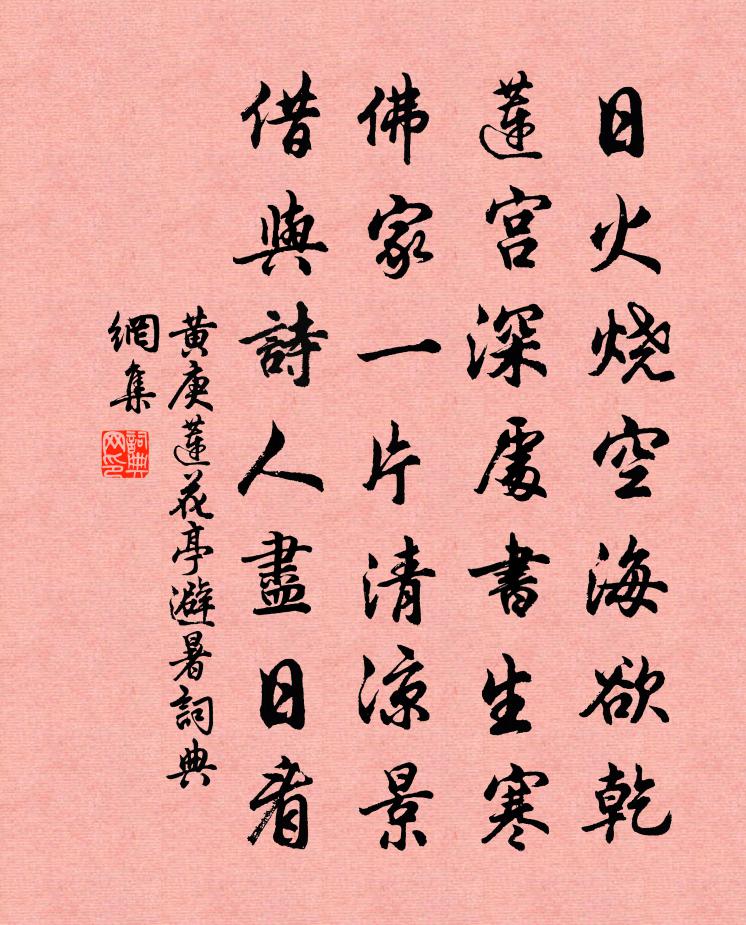 日火燒空海欲乾
蓮宮深處書生寒
佛家一片清涼景
借與詩人盡日看
黃庚蓮花亭避暑詞典
網集
詞典網印